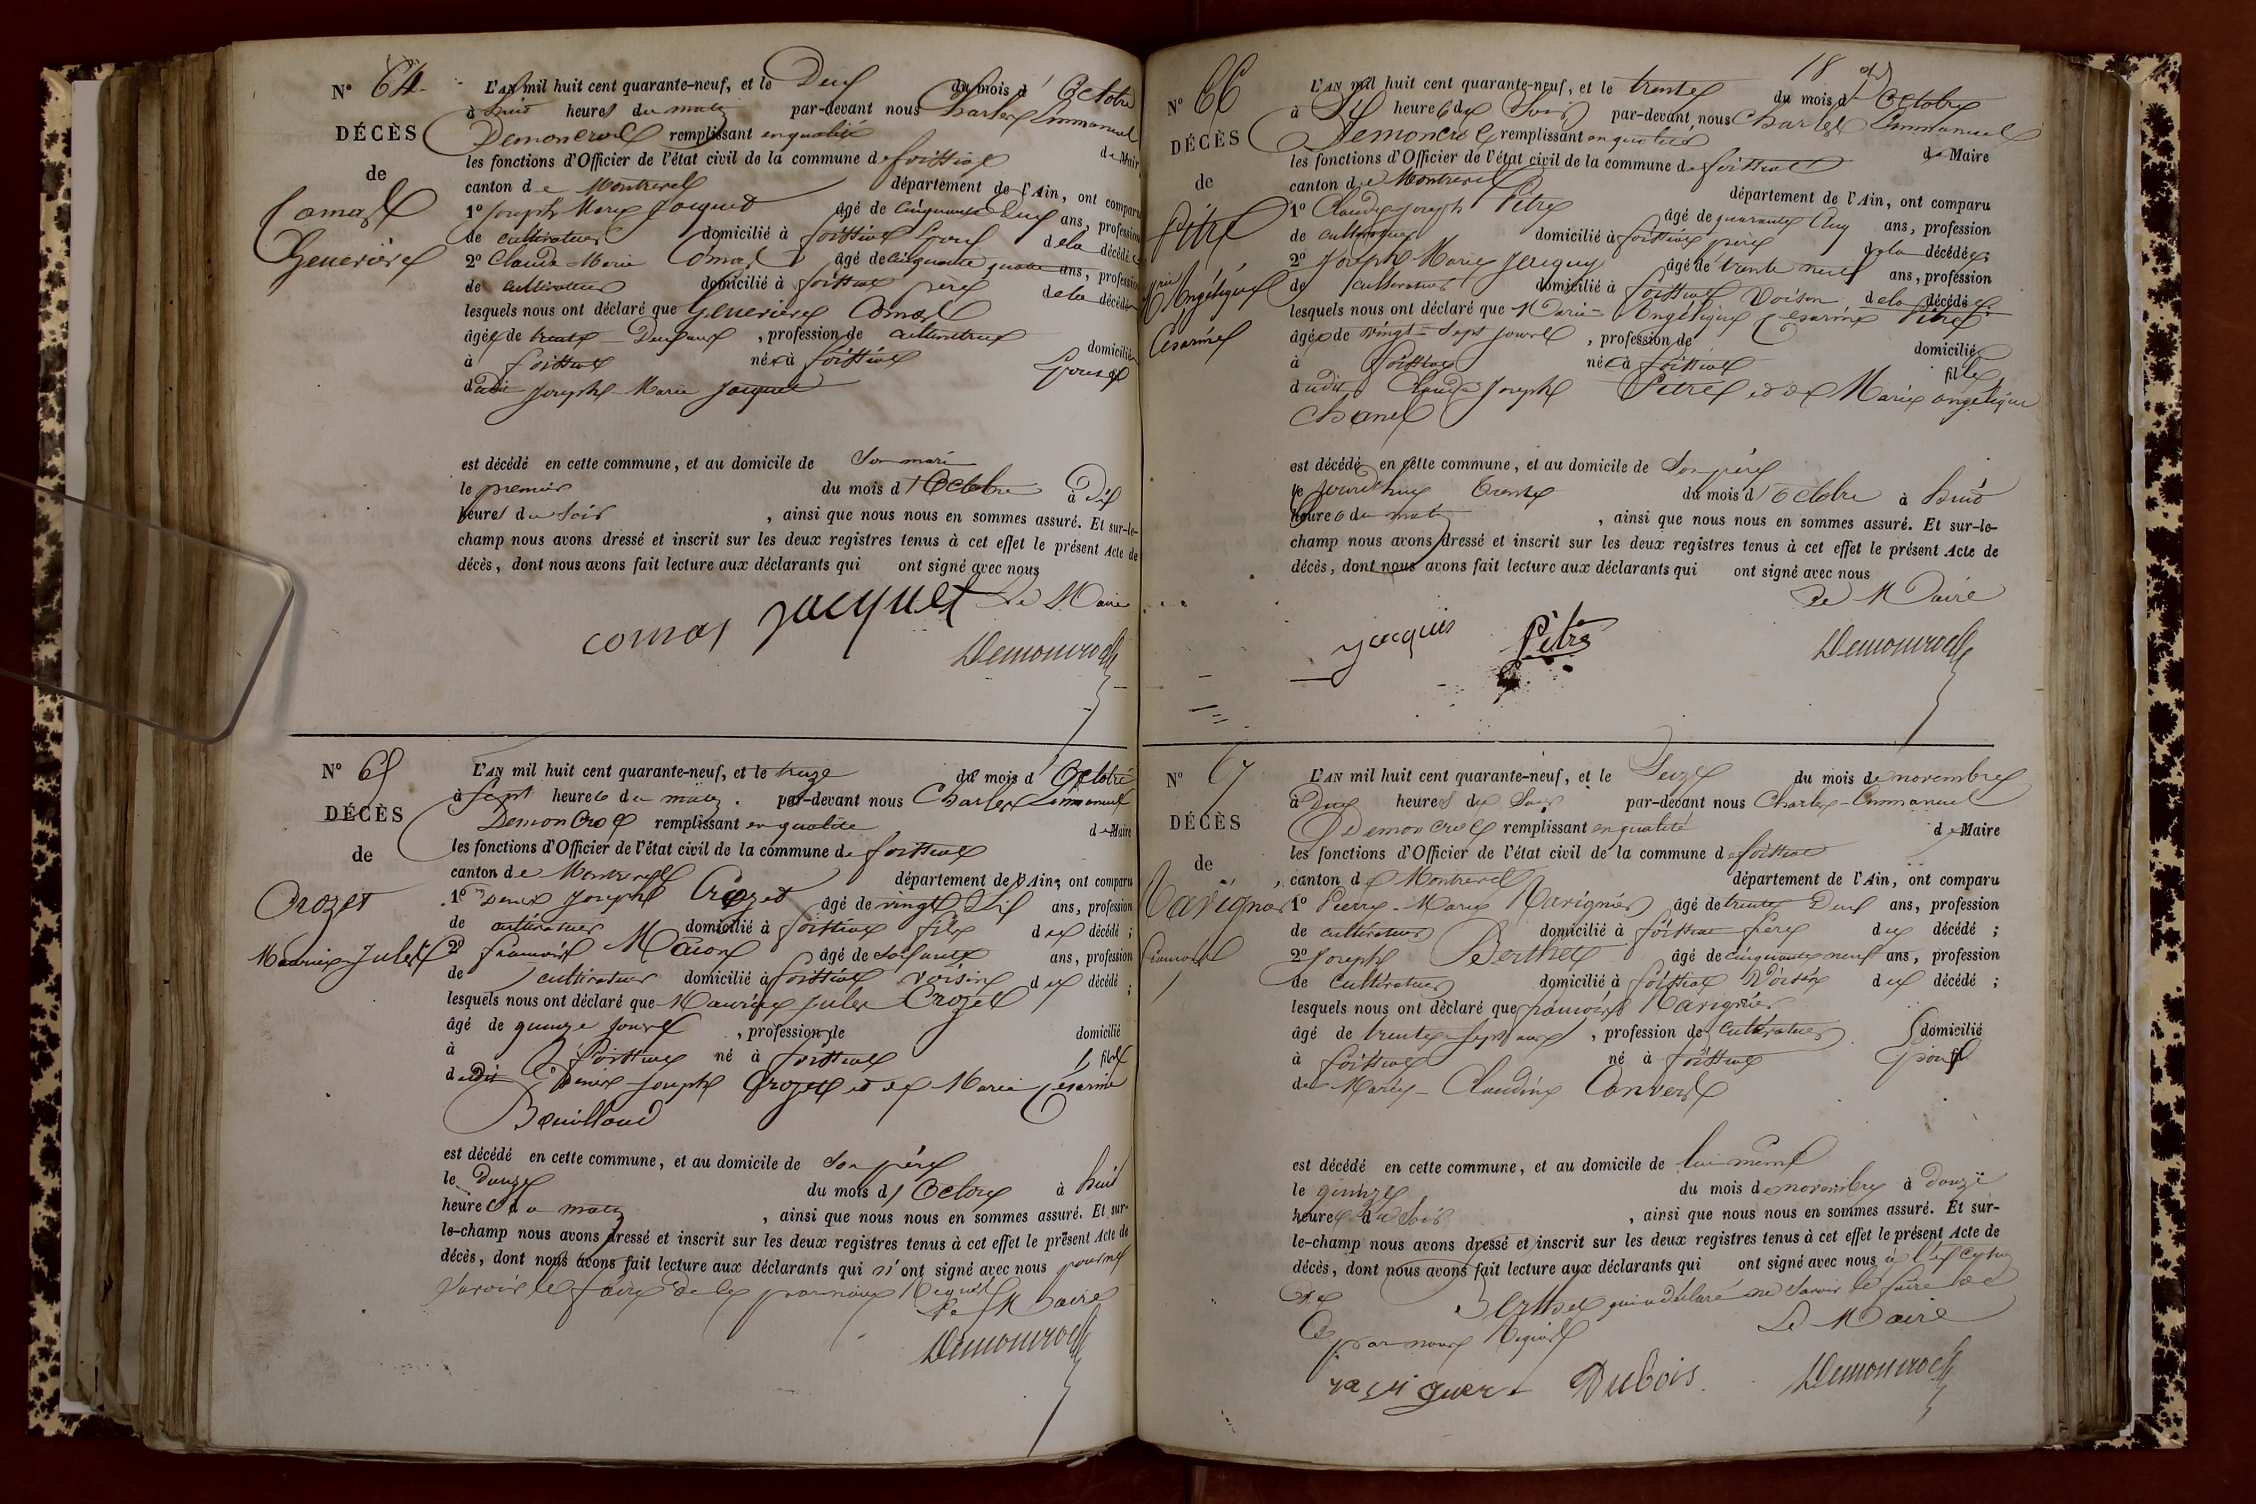 N° 64
DÉCÈS
de
Comas
Geneviève
L'AN mil huit cent quarante-neuf, et le Deux du mois d'Octobre
à huit heures du matin par-devant nous Charles Emmanuel
Demoncrocq remplissant en qualité de Maire
les fonctions d'Officier de l'état civil de la commune de foissiat
canton de Montrevel département de l'Ain, ont comparu
1° Joseph Marie Jacquet âgé de cinquante Deux ans, profession
de cultivateur domicilié à foissiat Epoux de la décédée
2° Claude-Marie Comas âgé de cinquante quatre ans, profession
de cultivateur domicilié à foissiat père de la décédée
lesquels nous ont déclaré que Geneviève Comas
âgée de trente-Deux ans, profession de cultivatrice domiciliée
à foissiat née à foissiat Epouse
dudit Joseph-Marie Jacquet
est décédé en cette commune, et au domicile de Son mari
le premier du mois d'Octobre à Dix
heures du Soir, ainsi que nous nous en sommes assuré. Et sur-le-
champ nous avons dressé et inscrit sur les deux registres tenus à cet effet le présent Acte de
décès, dont nous avons fait lecture aux déclarants qui ont signé avec nous
Le Maire
comas jacquet
N° 65
DÉCÈS
de
Crozet
Maurice-Jules
L'AN mil huit cent quarante-neuf, et le treize du mois d'Octobre
à Sept heures du matin. par-devant nous Charles Emmanuel
Demoncrocq remplissant en qualité de Maire
les fonctions d'Officier de l'état civil de la commune de foissiat
canton de Montrevel département de l'Ain, ont comparu
1° Denis Joseph Crozet âgé de vingt Dix ans, profession
de cultivateur domicilié à foissiat père du décédé ;
2° françois Maron âgé de Soixante ans, profession
de cultivateur domicilié à foissiat voisin du décédé ;
lesquels nous ont déclaré que Maurice Jules Crozet
âgé de quinze jours, profession de domicilié
à foissiat né à foissiat fils
dudit Denis Joseph Crozet et de Marie Césarine
Bouilloud
est décédé en cette commune, et au domicile de Son père
le Douze du mois d'Octobre à huit
heures du matin, ainsi que nous nous en sommes assuré. Et sur-
le-champ nous avons dressé et inscrit sur les deux registres tenus à cet effet le présent Acte de
décès, dont nous avons fait lecture aux déclarants qui n'ont signé avec nous pour ne
Savoir le faire de ce par nous Requis
Le Maire
18
N° 66
DÉCÈS
de
Pitre
Marie
Angélique
Césarine
L'AN mil huit cent quarante-neuf, et le trente du mois d'Octobre
à Six heures du Soir par-devant nous Charles Emmanuel
Demoncrocq remplissant en qualité de Maire
les fonctions d'Officier de l'état civil de la commune de foissiat
canton de Montrevel département de l'Ain, ont comparu
1° Claude Joseph Pitre âgé de quarante Cinq ans, profession
de cultivateur domicilié à foissiat père de la décédée ;
2° Joseph Marie Jacquis âgé de trente neuf ans, profession
de cultivateur domicilié à foissiat Voisin de la décédée ;
lesquels nous ont déclaré que Marie-Angélique Césarine Pitre
âgée de vingt-Sept jours, profession de domiciliée
à foissiat née à foissiat fille
dudit Claude Joseph Pitre et de Marie Angélique
Chanel
est décédé en cette commune, et au domicile de Son père
le jourd'hui trente du mois d'Octobre à huit
heures du matin, ainsi que nous nous en sommes assuré. Et sur-le-
champ nous avons dressé et inscrit sur les deux registres tenus à cet effet le présent Acte de
décès, dont nous avons fait lecture aux déclarants qui ont signé avec nous
Le Maire
jacquis Pitre
N° 67
DÉCÈS
de
Navignier
François
L'AN mil huit cent quarante-neuf, et le Seize du mois de novembre
à Deux heures du Soir par-devant nous Charles-Emmanuel
Demoncrocq remplissant en qualité de Maire
les fonctions d'Officier de l'état civil de la commune de foissiat
canton de Montrevel département de l'Ain, ont comparu
1° Pierre-Marie Navignier âgé de trente Deux ans, profession
de cultivateur domicilié à foissiat frère du décédé ;
2° Joseph Berthet âgé de cinquante neuf ans, profession
de cultivateur domicilié à foissiat Voisin du décédé ;
lesquels nous ont déclaré que françois Navignier
âgé de trente-Sept ans, profession de cultivateur domicilié
à foissiat né à foissiat Epoux
de Marie-Claudine Convert
est décédé en cette commune, et au domicile de lui même
le quinze du mois de novembre à Douze
heures du Soir, ainsi que nous nous en sommes assuré. Et sur-
le-champ nous avons dressé et inscrit sur les deux registres tenus à cet effet le présent Acte de
décès, dont nous avons fait lecture aux déclarants qui ont signé avec nous à l'exception
de Berthet qui a déclaré ne Savoir le faire de
Ce par nous Requis
Le Maire
Dubois